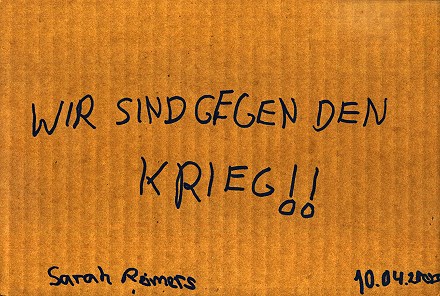 WIR SIND GEGEN DEN
KRIEG!!
Sarah Römers
10.04.